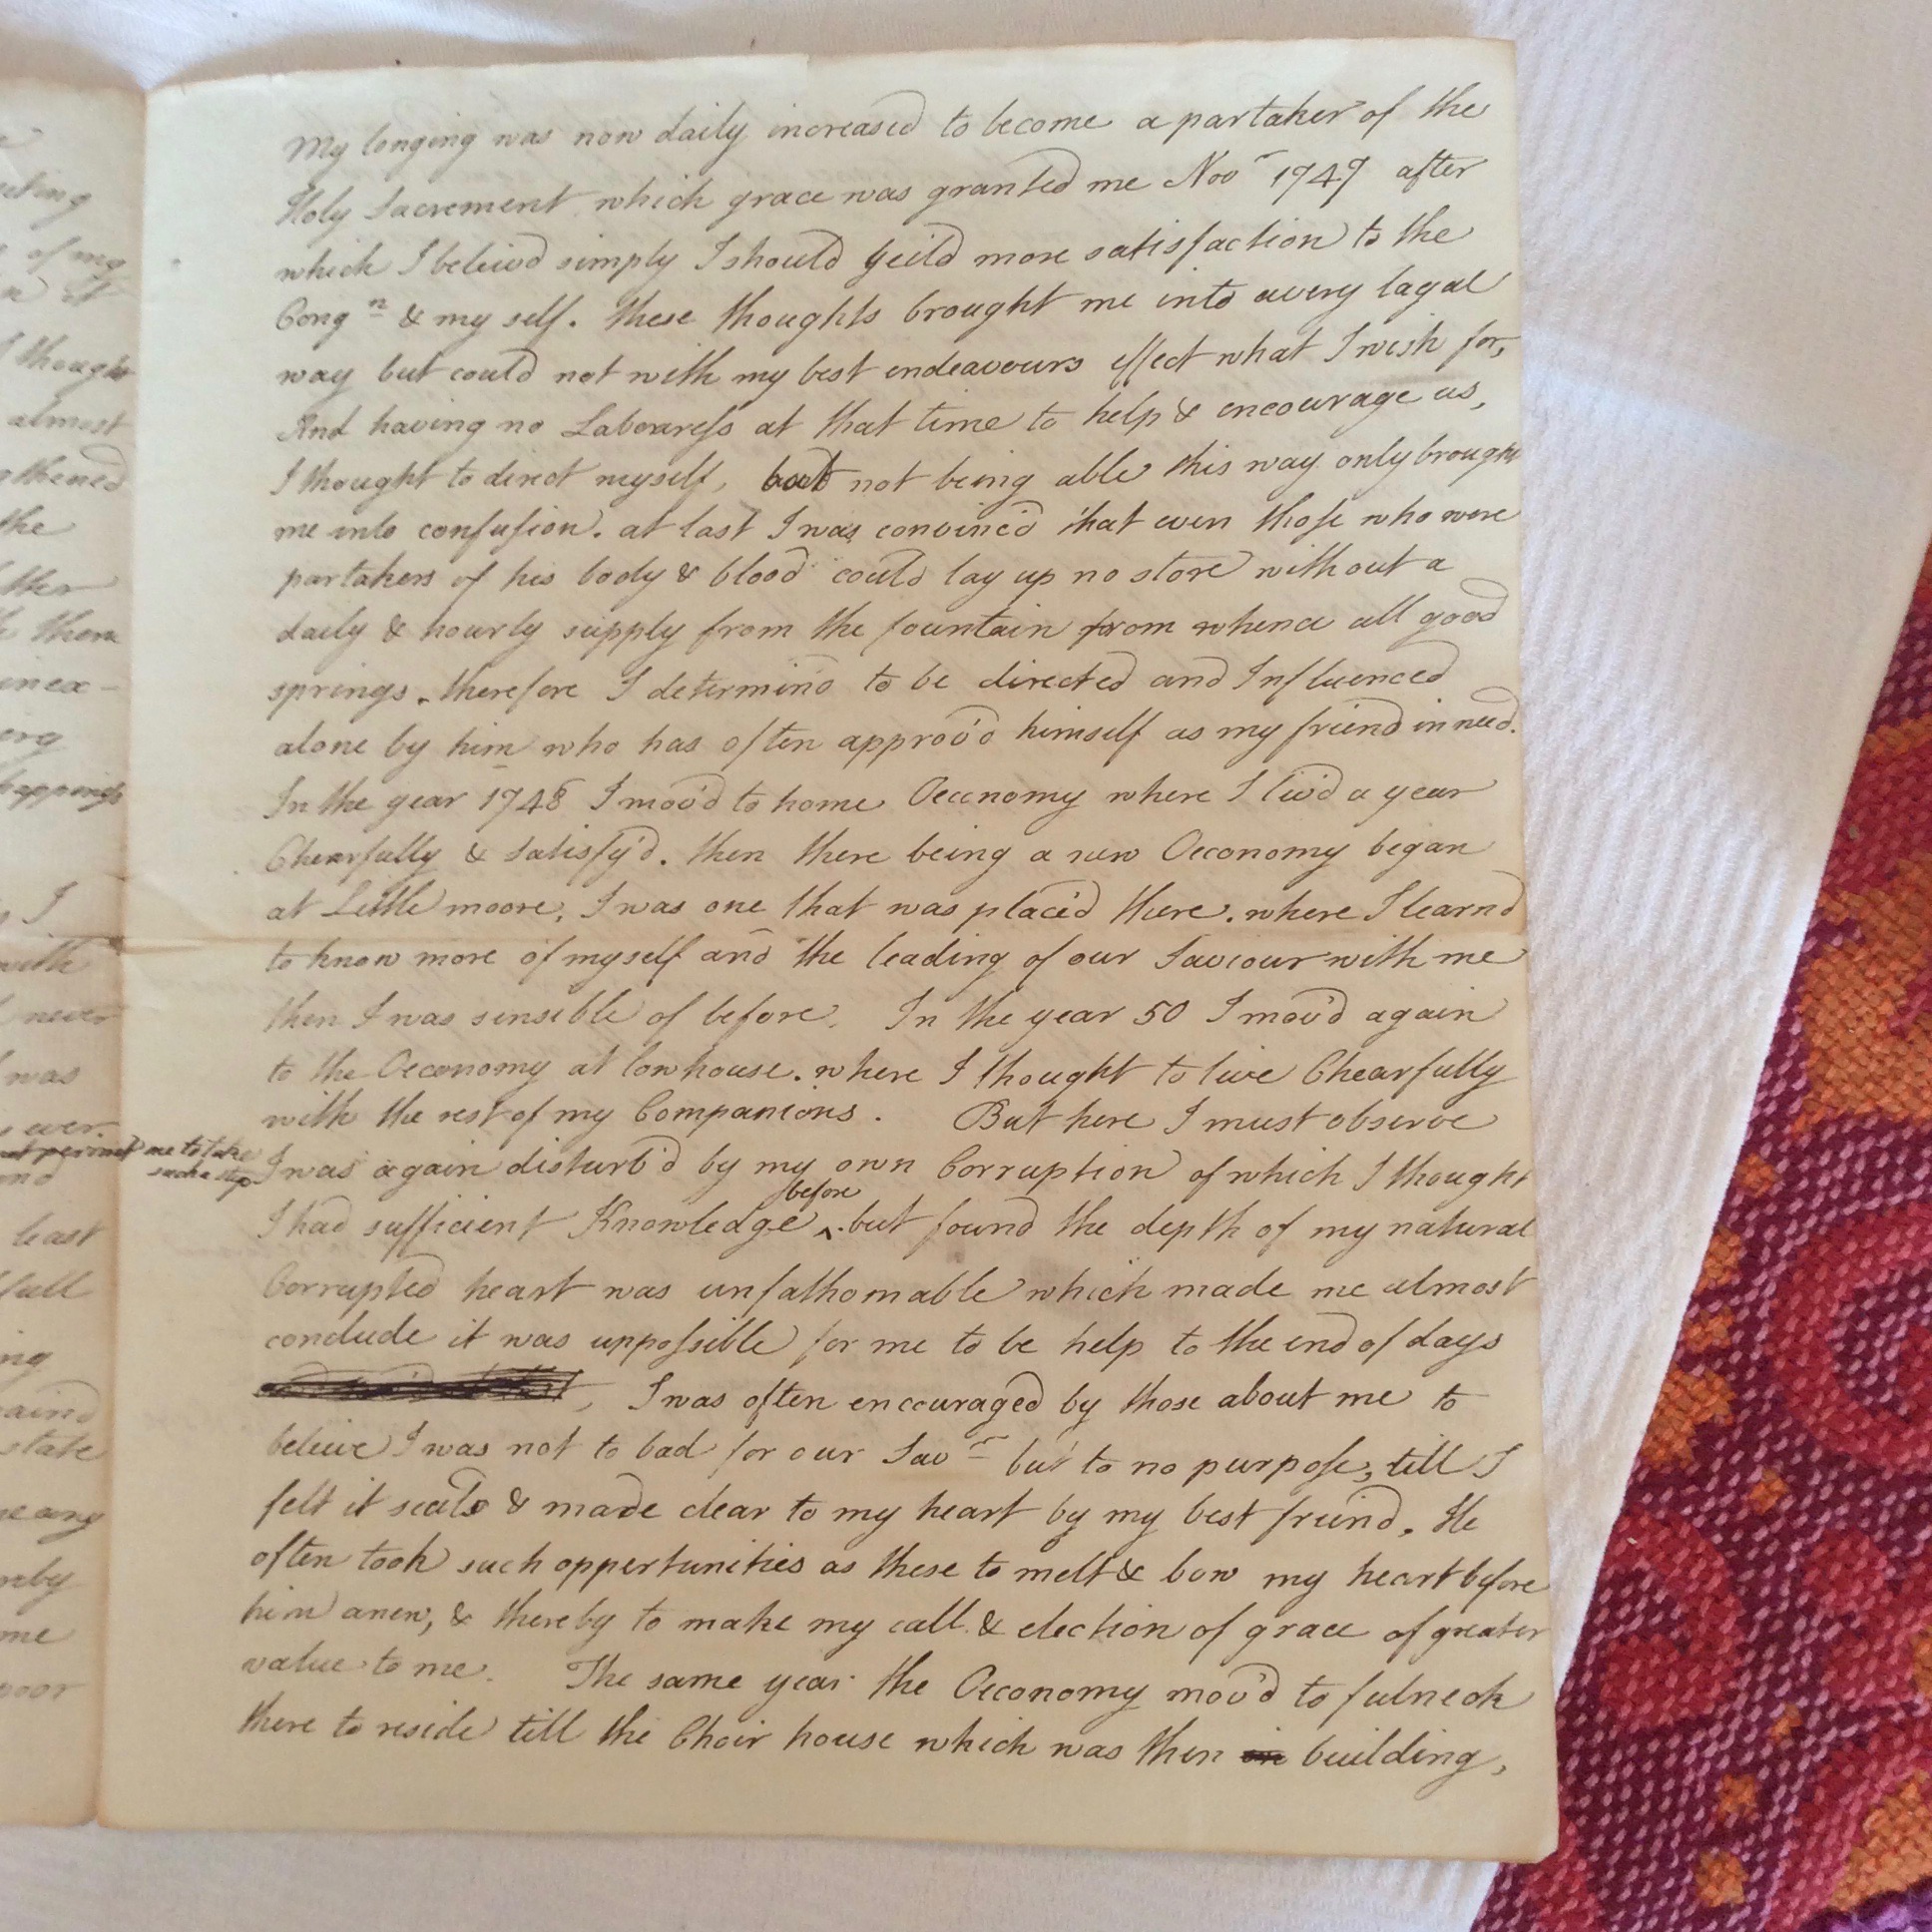 My longing was now daily increased to become a partaker of the
Holy Sacrement which grace was granted me Novr 1747 after
which I beleivd simply I should yeild more satisfaction to the
Congn & my self. these thoughts brought me into avery lagal
way but could not with my best endeavours effect what I wish for,
And having no Labouress at that time to help & encourage us,
I thought to direct myself, but not being able this way only brought
me into confusion. at last I was convinc'd that even those who were
partakers of his body & blood could lay up no store without a
daily & hourly supply from the fountain from whence all good
springs. therefore I determin'd to be directed and Influenced
alone by him who has often approv'd himself as my friend in need.
In the year 1748 I mov'd to home Oeconomy where I liv'd a year
Chearfully & Satisfy'd. then there being a new Oeconomy began
at Little moore, I was one that was plac'd there. where I learnd
to know more of myself and the leading of our Saviour with me
then I was sensible of before. In the year 50 I mov'd again
to the Oeconomy at lowhouse. where I thought to live Chearfully
with the rest of my Companions. But here I must observe
I was again disturb'd by my own Corruption of which I thought
I had sufficient Knowledge before. but found the depth of my natural
Corrupted heart was unfathomable which made me almost
conclude it was unpossible for me to be help to the end of days
I was often encouraged by those about me to
beleive I was not to bad for our Savr but to no purpose, till I
felt it seald & made clear to my heart by my best freind. He
often took such oppertunities as these to melt & bow my heart before
him anew, & thereby to make my call & election of grace of greater
value to me. The same year the Oeconomy mov'd to fulneck
there to reside till the Choir house which was then in building,
me to take
such a step
of my
thought
almost
the
them
I
never
was
ever
least
full
state
me
poor